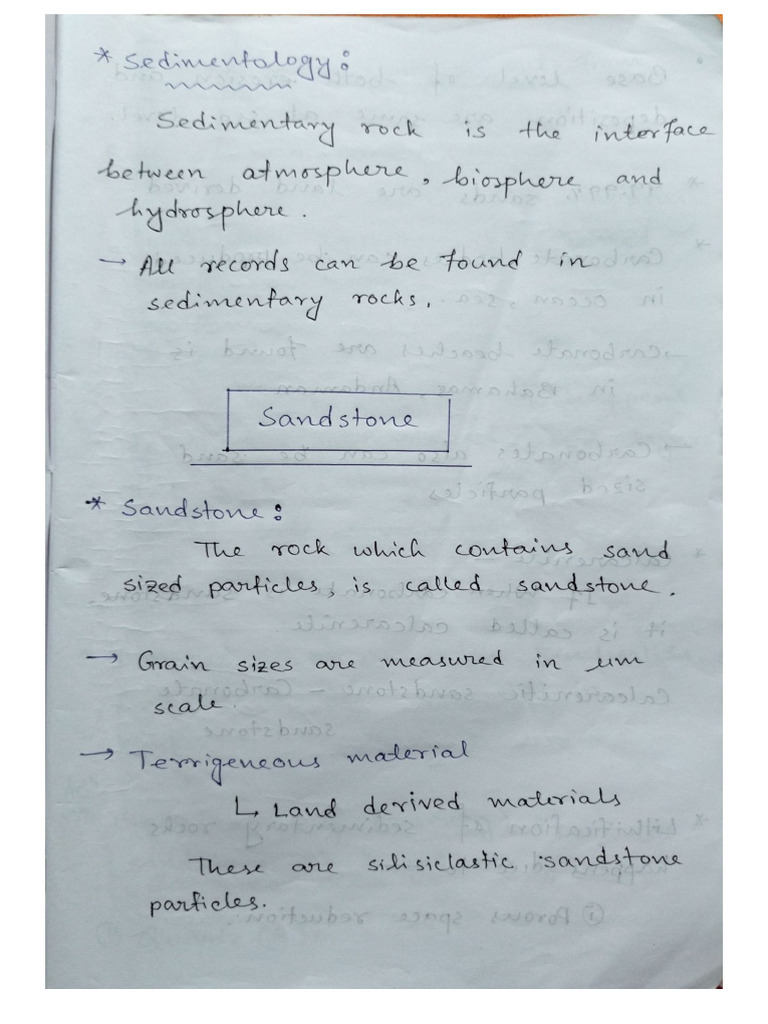 * Sedimentology:
Sedimentary rock is the interface
between atmosphere, biosphere and
hydrosphere.
→ All records can be found in
sedimentary rocks.
Sandstone
* Sandstone:
The rock which contains sand
sized particles, is called sandstone.
→ Grain sizes are measured in μm
scale.
→ Terrigeneous material
↳ Land derived materials
These are silisiclastic sandstone
particles.